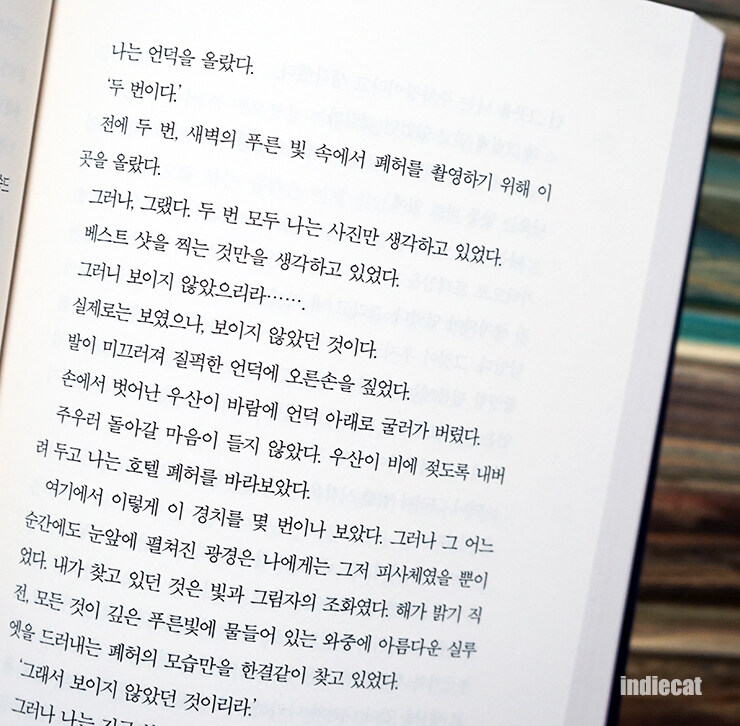 나는 언덕을 올랐다.
‘두 번이다.’
전에 두 번, 새벽의 푸른 빛 속에서 폐허를 촬영하기 위해 이
곳을 올랐다.
그러나, 그랬다. 두 번 모두 나는 사진만 생각하고 있었다.
베스트 샷을 찍는 것만을 생각하고 있었다.
그러니 보이지 않았으리라…….
실제로는 보였으나, 보이지 않았던 것이다.
발이 미끄러져 질퍽한 언덕에 오른손을 짚었다.
손에서 벗어난 우산이 바람에 언덕 아래로 굴러가 버렸다.
주우러 돌아갈 마음이 들지 않았다. 우산이 비에 젖도록 내버
려 두고 나는 호텔 폐허를 바라보았다.
여기에서 이렇게 이 경치를 몇 번이나 보았다. 그러나 그 어느
순간에도 눈앞에 펼쳐진 광경은 나에게는 그저 피사체였을 뿐이
었다. 내가 찾고 있던 것은 빛과 그림자의 조화였다. 해가 밝기 직
전, 모든 것이 깊은 푸른빛에 물들어 있는 와중에 아름다운 실루
엣을 드러내는 폐허의 모습만을 한결같이 찾고 있었다.
‘그래서 보이지 않았던 것이리라.’
그러나 나는
indiecat